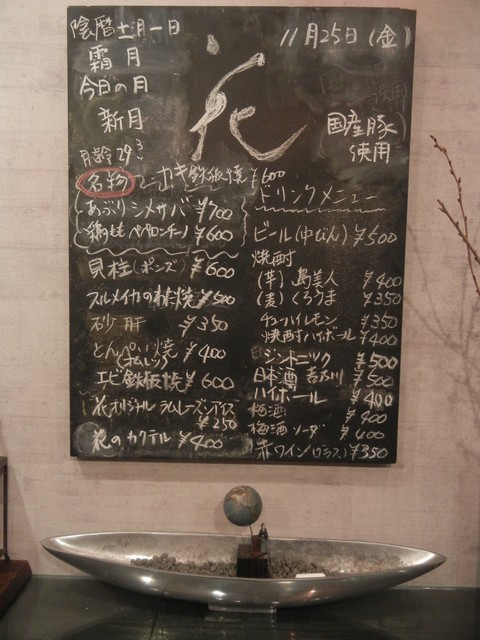 陰暦十一月一日
霜月
今日の月
新月
月齢29.3
花
11月25日(金)
国産豚
使用
名物 カキ鉄板焼 ¥600
あぶりシメサバ ¥700
鶏もも ペペロンチーノ ¥600
貝柱(ポンズ) ¥600
スルメイカのわた焼 ¥500
砂肝 ¥350
とんぺい焼 ¥400
(オムレツ)
エビ鉄板焼 ¥600
花オリジナル ラムレーズンアイス
¥250
花のカクテル ¥400
ドリンクメニュー
ビール(中びん) ¥500
焼酎
(芋) 島美人 ¥400
(麦) くろうま ¥350
チューハイレモン ¥350
焼酎ハイボール ¥400
ジントニック ¥500
日本酒 ¥500
ハイボール ¥400
梅酒 ¥400
梅酒ソーダ ¥400
赤ワイン(グラス) ¥350